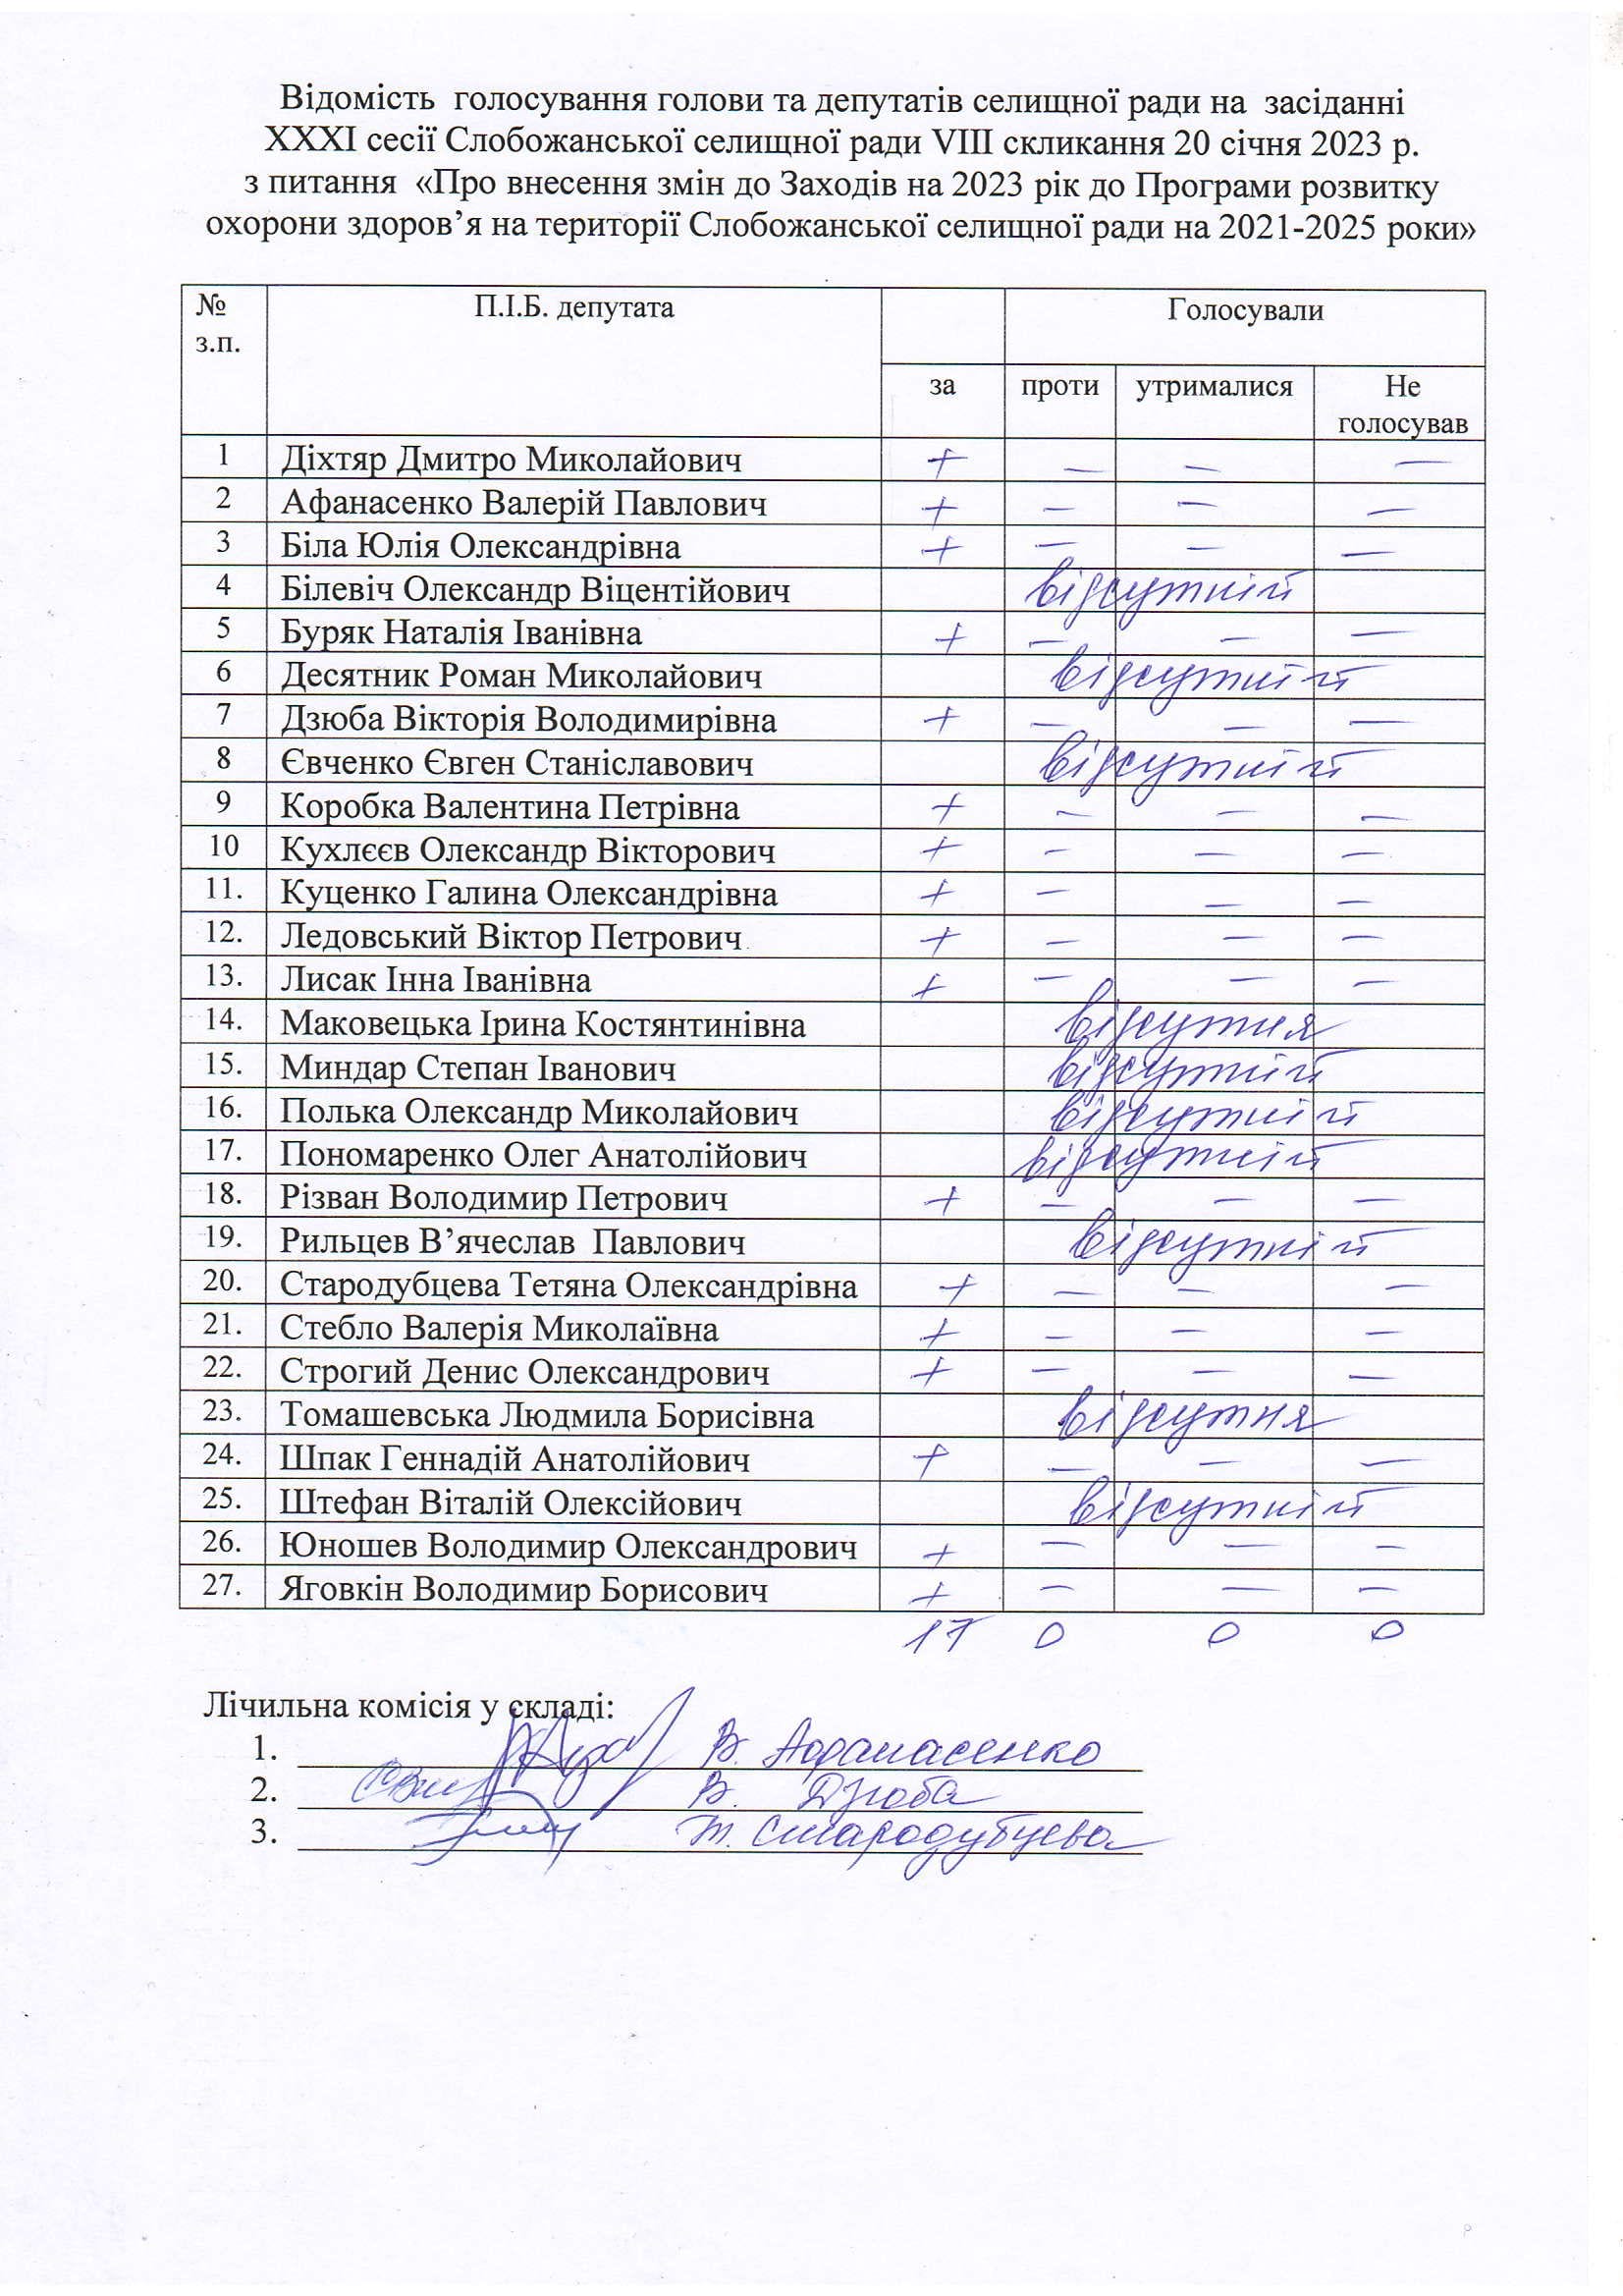 Відомість голосування голови та депутатів селищної ради на засіданні
ХХХІ сесії Слобожанської селищної ради VІІІ скликання 20 січня 2023 р.
з питання «Про внесення змін до Заходів на 2023 рік до Програми розвитку
охорони здоров’я на території Слобожанської селищної ради на 2021-2025 роки»
№ з.п. П.І.Б. депутата Голосували
за проти утрималися Не голосував
1 Діхтяр Дмитро Миколайович + — — —
2 Афанасенко Валерій Павлович + — — —
3 Біла Юлія Олександрівна + — — —
4 Білевіч Олександр Віцентійович відсутній
5 Буряк Наталія Іванівна + — — —
6 Десятник Роман Миколайович відсутній
7 Дзюба Вікторія Володимирівна + — — —
8 Євченко Євген Станіславович відсутній
9 Коробка Валентина Петрівна + — — —
10 Кухлєєв Олександр Вікторович + — — —
11. Куценко Галина Олександрівна + — — —
12. Ледовський Віктор Петрович + — — —
13. Лисак Інна Іванівна + — — —
14. Маковецька Ірина Костянтинівна відсутня
15. Миндар Степан Іванович відсутній
16. Полька Олександр Миколайович відсутній
17. Пономаренко Олег Анатолійович відсутній
18. Різван Володимир Петрович + — — —
19. Рильцев В’ячеслав Павлович відсутній
20. Стародубцева Тетяна Олександрівна + — — —
21. Стебло Валерія Миколаївна + — — —
22. Строгий Денис Олександрович + — — —
23. Томашевська Людмила Борисівна відсутня
24. Шпак Геннадій Анатолійович + — — —
25. Штефан Віталій Олексійович відсутній
26. Юношев Володимир Олександрович + — — —
27. Яговкін Володимир Борисович + — — —
17 0 0 0
Лічильна комісія у складі:
1. В. Афанасенко
2. В. Дзюба
3. Т. Стародубцева